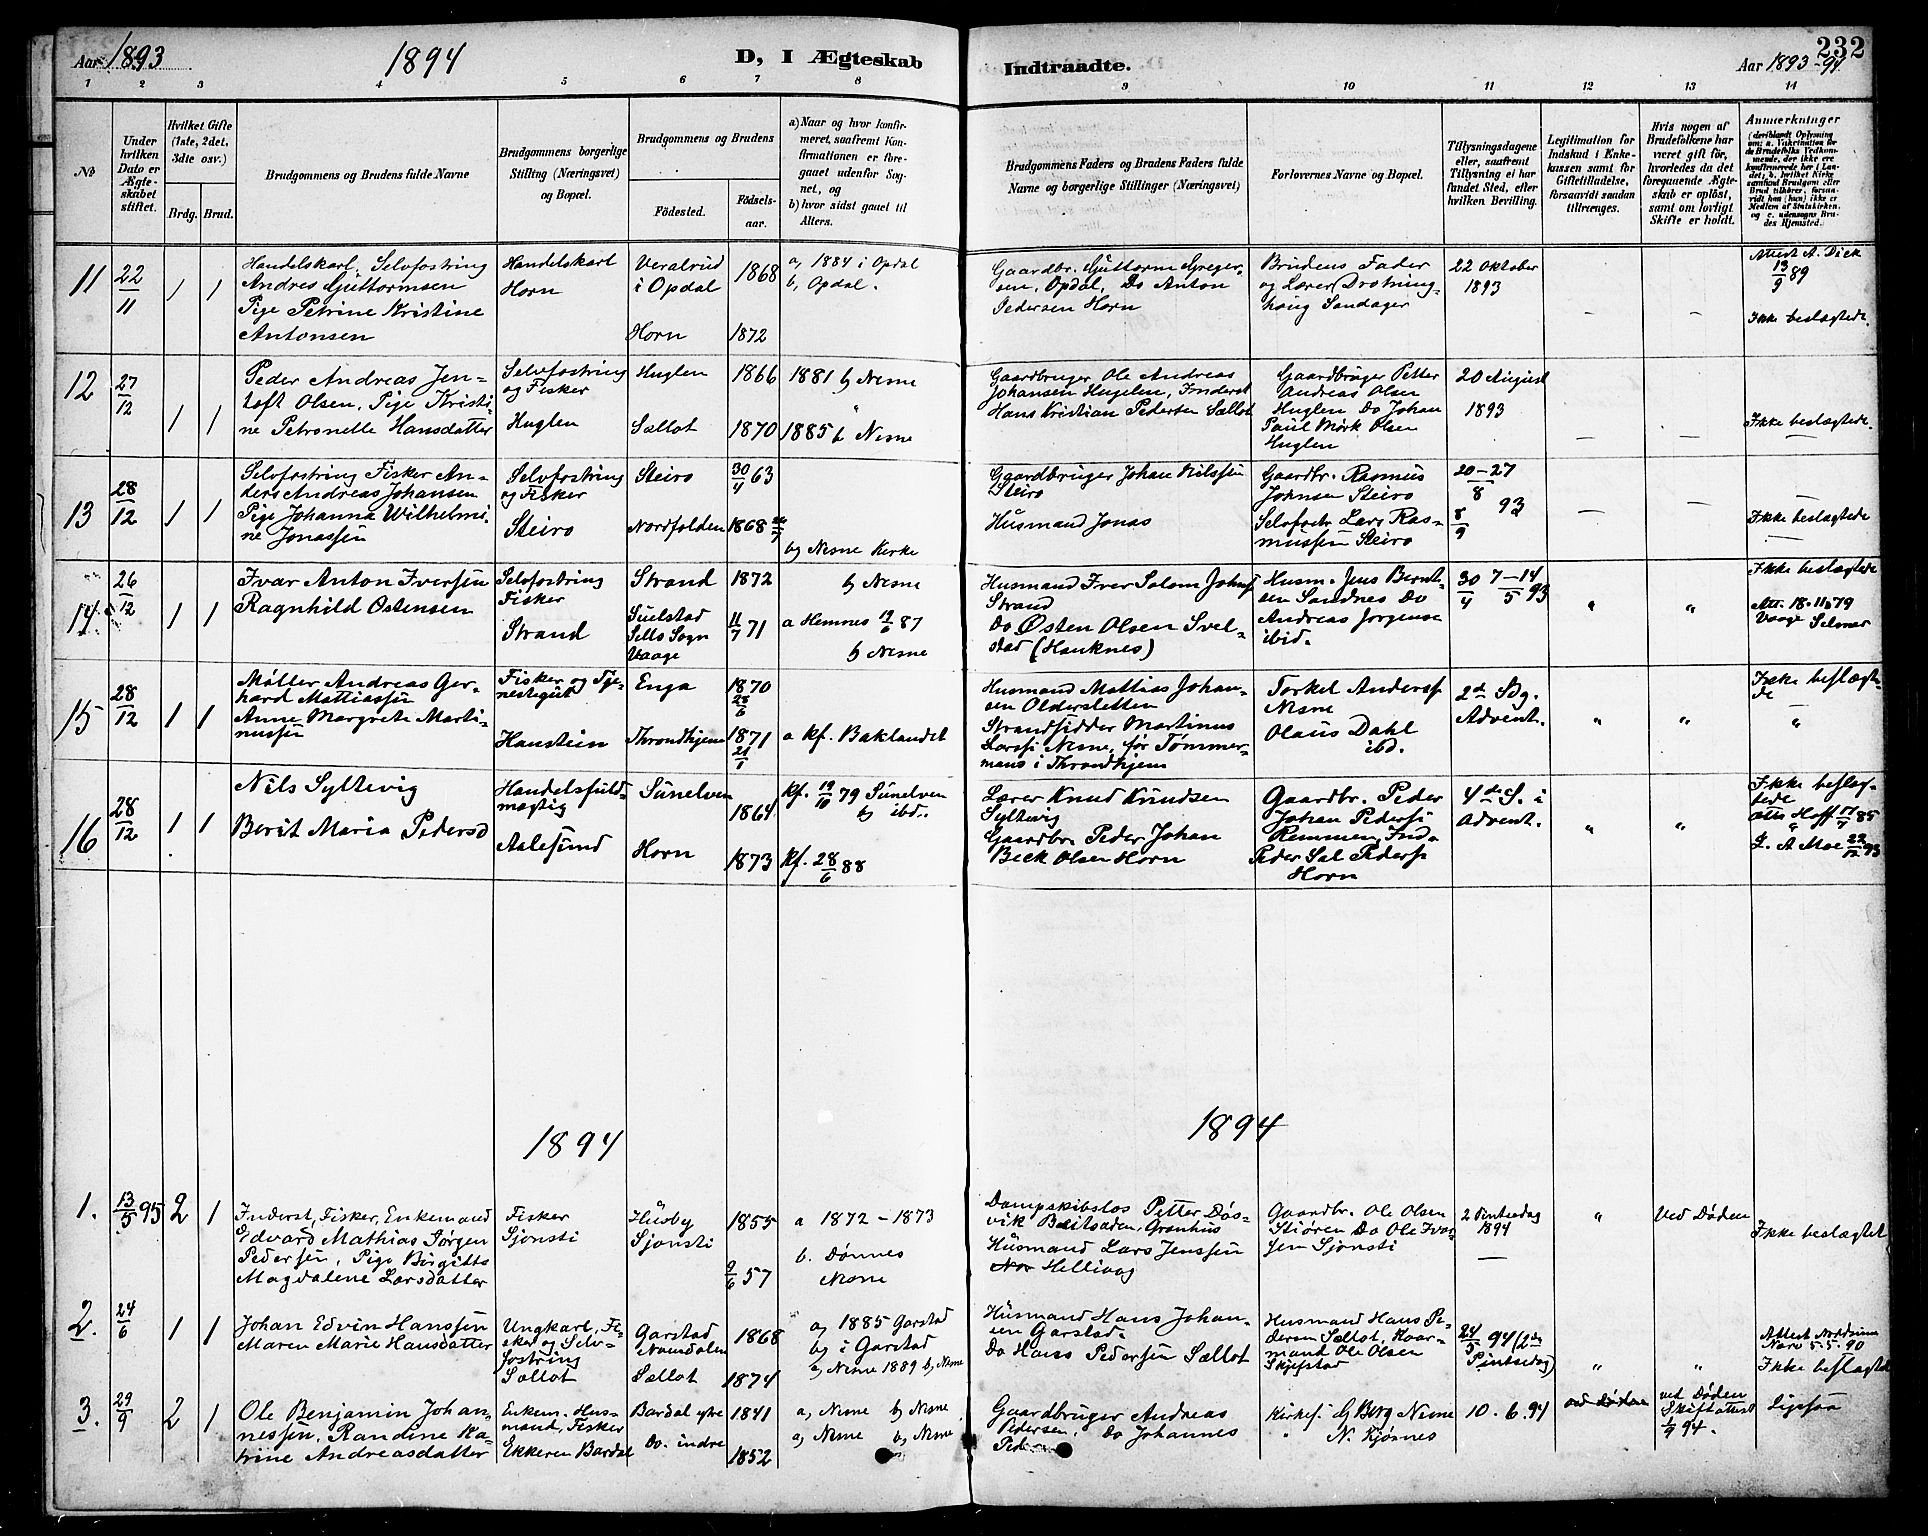 Aar 1893
1894
D, I Ægteskab
Indtraadte.
Aar 1893-94
232
1 2 3 4 5 6 7 8 9 10 11 12 13 14
No
Under hvilken Dato er Ægteskabet stiftet.
Hvilket Gifte (1ste, 2det, 3die osv.)
Brdg. Brud.
Brudgommens og Brudens fulde Navne
Brudgommens borgerlige Stilling (Næringsvei) og Bopæl.
Brudgommens og Brudens
Födested. Födselsaar.
a) Naar og hvor konfirmeret, saafremt Konfirmationen er foregaaet udenfor Sognet, og
b) hvor sidst gaaet til Alters.
Brudgommens Faders og Brudens Faders fulde Navne og borgerlige Stillinger (Næringsvei)
Forlovernes Navne og Bopæl.
Tillysningsdagene eller, saafremt Tillysning ei har fundet Sted, efter hvilken Bevilling.
Legitimation for Indskud i Enkekassen samt for Giftetilladelse, forsaavidt saadan tiltrænges.
Hvis nogen af Brudefolkene har været gift før, hvorledes da det foregaaende Ægteskab er opløst, samt om lovligt Skifte er holdt.
Anmerkninger
11
22/11
1 1
Handelskarl, Selvfostring
Andres Guttormsen
Pige Petrine Kristine
Antonsen
Handelskarl
Horn
i Opdal
1868
Horn
1872
a, 1884 i Opdal
b, Opdal.
Gaardbr. Guttorm Greger-
sen, Opdal, Do Anton
Pedersen Horn
Brudens Fader
og Lærer Drotning-
haug Sandager
22 Oktober
1893
Attest A. Dick
13/9 89
Ikke beslægtede.
12
27/12
1 1
Peder Andreas Jen-
toft Olsen, Pige Kristi-
ne Petronelle Hansdatter
Selvfostring
og Fisker
Huglen
Huglen
1866
Sællot
1870
1881 b, Nesne
1885 b Nesne
Gaardbruger Ole Andreas
Johansen Huglen, Inderst
Hans Kristian Pedersen Sællot
Gaardbruger Petter
Andreas Olsen
Huglen Do Johan
Paul Mörk Olsen
Huglen
20 August
1893
Ikke beslægtede.
13
28/12
1 1
Selvfostring Fisker An-
ders Andreas Johansen
Pige Johanna Wilhelmi-
ne Jonassen
Selvfostring
og Fisker
Steiro
Steiro
30/4 63
Nordfolden
1868
b, Nesne Kirke
Gaardbruger Johan Nilssen
Steiro
Husmand Jonas
Gaardbr. Rasmus
Johnsen Steiro
Selvfostr Lars Ras-
mussen Steiro
20-27/8
8/9 93
Ikke beslægtede
14
26/12
1 1
Ivar Anton Iversen
Ragnhild Ostensen
Selvfostring
Fisker
Strand
Strand
1872
Vaage
11/7 71
b, Nesne
a Hemnes 19/6 87
b, Nesne
Husmand Iver Salom Johns
Strand
Do Østen Olsen Svel-
stad (Hauknes)
Husm. Jens Bernt-
sen Sandnes Do
Andreas Jörgensen
ibid.
30/4 7-14/5 93
Ikke beslægtede
Att. 18.11.79
Vaage Selmer
15
28/12
1 1
Møller Andreas Ger-
hard Mattiassen
Anne Margrete Marti-
nussen
Fisker og Tje-
nestegut
Hanstein
Enga
1870
28/6
Throndhjem
1871
21/1
a kf. Baklandet
Husmand Mattias Johan-
sen Oldersletten
Strandsidder Martinus
Larss. Nesne, før Tømmer-
mans i Throndhjem
Torkel Anderss
Nesne
Olaus Dahl
ibd.
2de Sdg.
Advent.
Ikke beslægte-
de
16
28/12
1 1
Nils Syltevig
Berit Maria Pedersd
Handelsfuld-
mægtig
Aalesund
Sunelven
1864
Horn
1873
kf. 19/10 79 Sunelven
b, ibd.
kf. 28/6 88
Lærer Knud Knudsen
Syltevig
Gaardbr. Peder Johan
Beck Olsen Horn
Gaardbr. Peder
Johan Peders.
Remmen, Ind.
Peder Sal Peders.
Horn
4de S. i
Advent.
Ikke beslæg-
tede
att. Hoff 17/7 85
A Moe 22/12 93
1894
1894
1.
13/5 95
2 1
Inderst, Fisker, Enkemand
Edvard Mathias Jörgen
Pedersen, Pige Birgitte
Magdalene Larsdatter
Fisker
Sjonsti
Husby
Sjonsti
1855
9/6 57
a 1872 - 1873
b. Dønnes
Nesne
Dampskibslos Petter Døs-
vik
Husmand Lars Jenssen
Hellivaag
Gaardbr. Ole Olsen
Do Ole Ivar
sen Sjonsti
2 Pintsedag
1894
Ved Døden
Ikke beslægtet
2.
24/6
1 1
Johan Edvin Hanssen
Maren Marie Hansdatter
Ungkarl, Fi-
sker og Selv-
fostring
Sællot
Garstad
Namdalen
1868
Sællot
1874
a, 1885 Garstad
b, i Garstad
a, Nesne 1889 b, Nesne
Husmand Hans Johan-
sen Garstad.
Do Hans Pedersen Sællot
Husmand Hans Pe-
dersen Sællot, Kvar-
mand Ole Olsen
Skjefstad
24/5 94 (2de
Pintsedag)
5.5.90
Ikke beslægtet
3.
29/9
2 1
Ole Benjamin Johan-
nessen, Randine Ka-
trine Andreasdatter
Enkem. Hus-
mand, Fisker
Ekkeren Bardal
Bardal ytre
1841
Do. indre
1852
a, Nesne b, Nesne
a, Nesne b, Nesne
Gaardbruger Andreas
Pedersen, Do Johannes
Kirkes. G Berg Nesne
" N. Kjønnes
10.6.94
ved Døden
ved Døden
Skifteattest
1/9 94.
Ligesaa